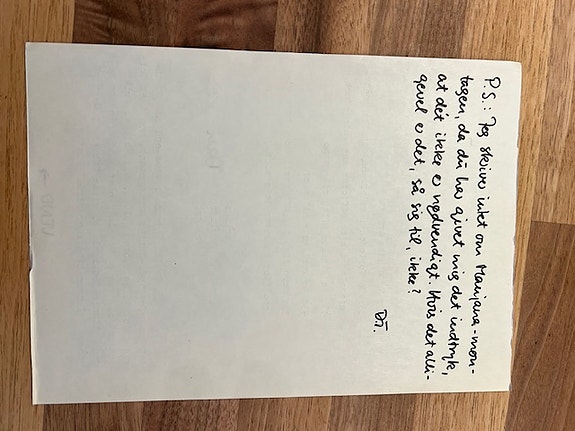 P.S.: Jeg skriver intet om Manjana-mon-
tagen, da du har givet mig det indtryk,
at det ikke er nødvendigt. Hvis det alli-
gevel er det, så sig til, ikke?
D.